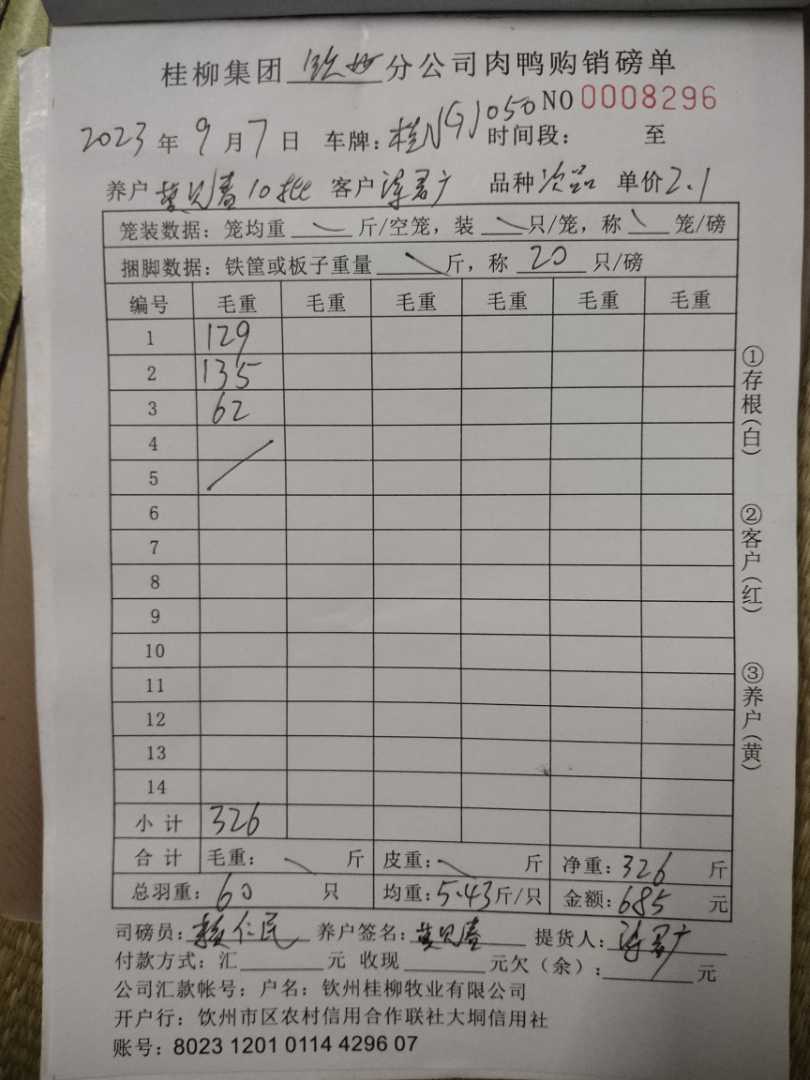 桂柳集团 钦州 分公司肉鸭购销磅单
NO 0008296
2023 年 9 月 7 日 车牌：桂N 050 时间段： 至
养户 10批 客户 品种 次品 单价 2.1
笼装数据：笼均重 斤/空笼，装 只/笼，称 笼/磅
捆脚数据：铁筐或板子重量 斤，称 20 只/磅
编号 毛重 毛重 毛重 毛重 毛重 毛重
1 129
2 135
3 62
4
5
6
7
8
9
10
11
12
13
14
小计 326
合计 毛重： 斤 皮重： 斤 净重：326 斤
总羽重：60 只 均重：5.43 斤/只 金额：685 元
司磅员：赖仁民 养户签名： 提货人：
付款方式：汇 元 收现 元欠（余）： 元
公司汇款帐号：户名：钦州桂柳牧业有限公司
开户行：饮州市区农村信用合作联社大垌信用社
账号：8023 1201 0114 4296 07
①存根（白）
②客户（红）
③养户（黄）